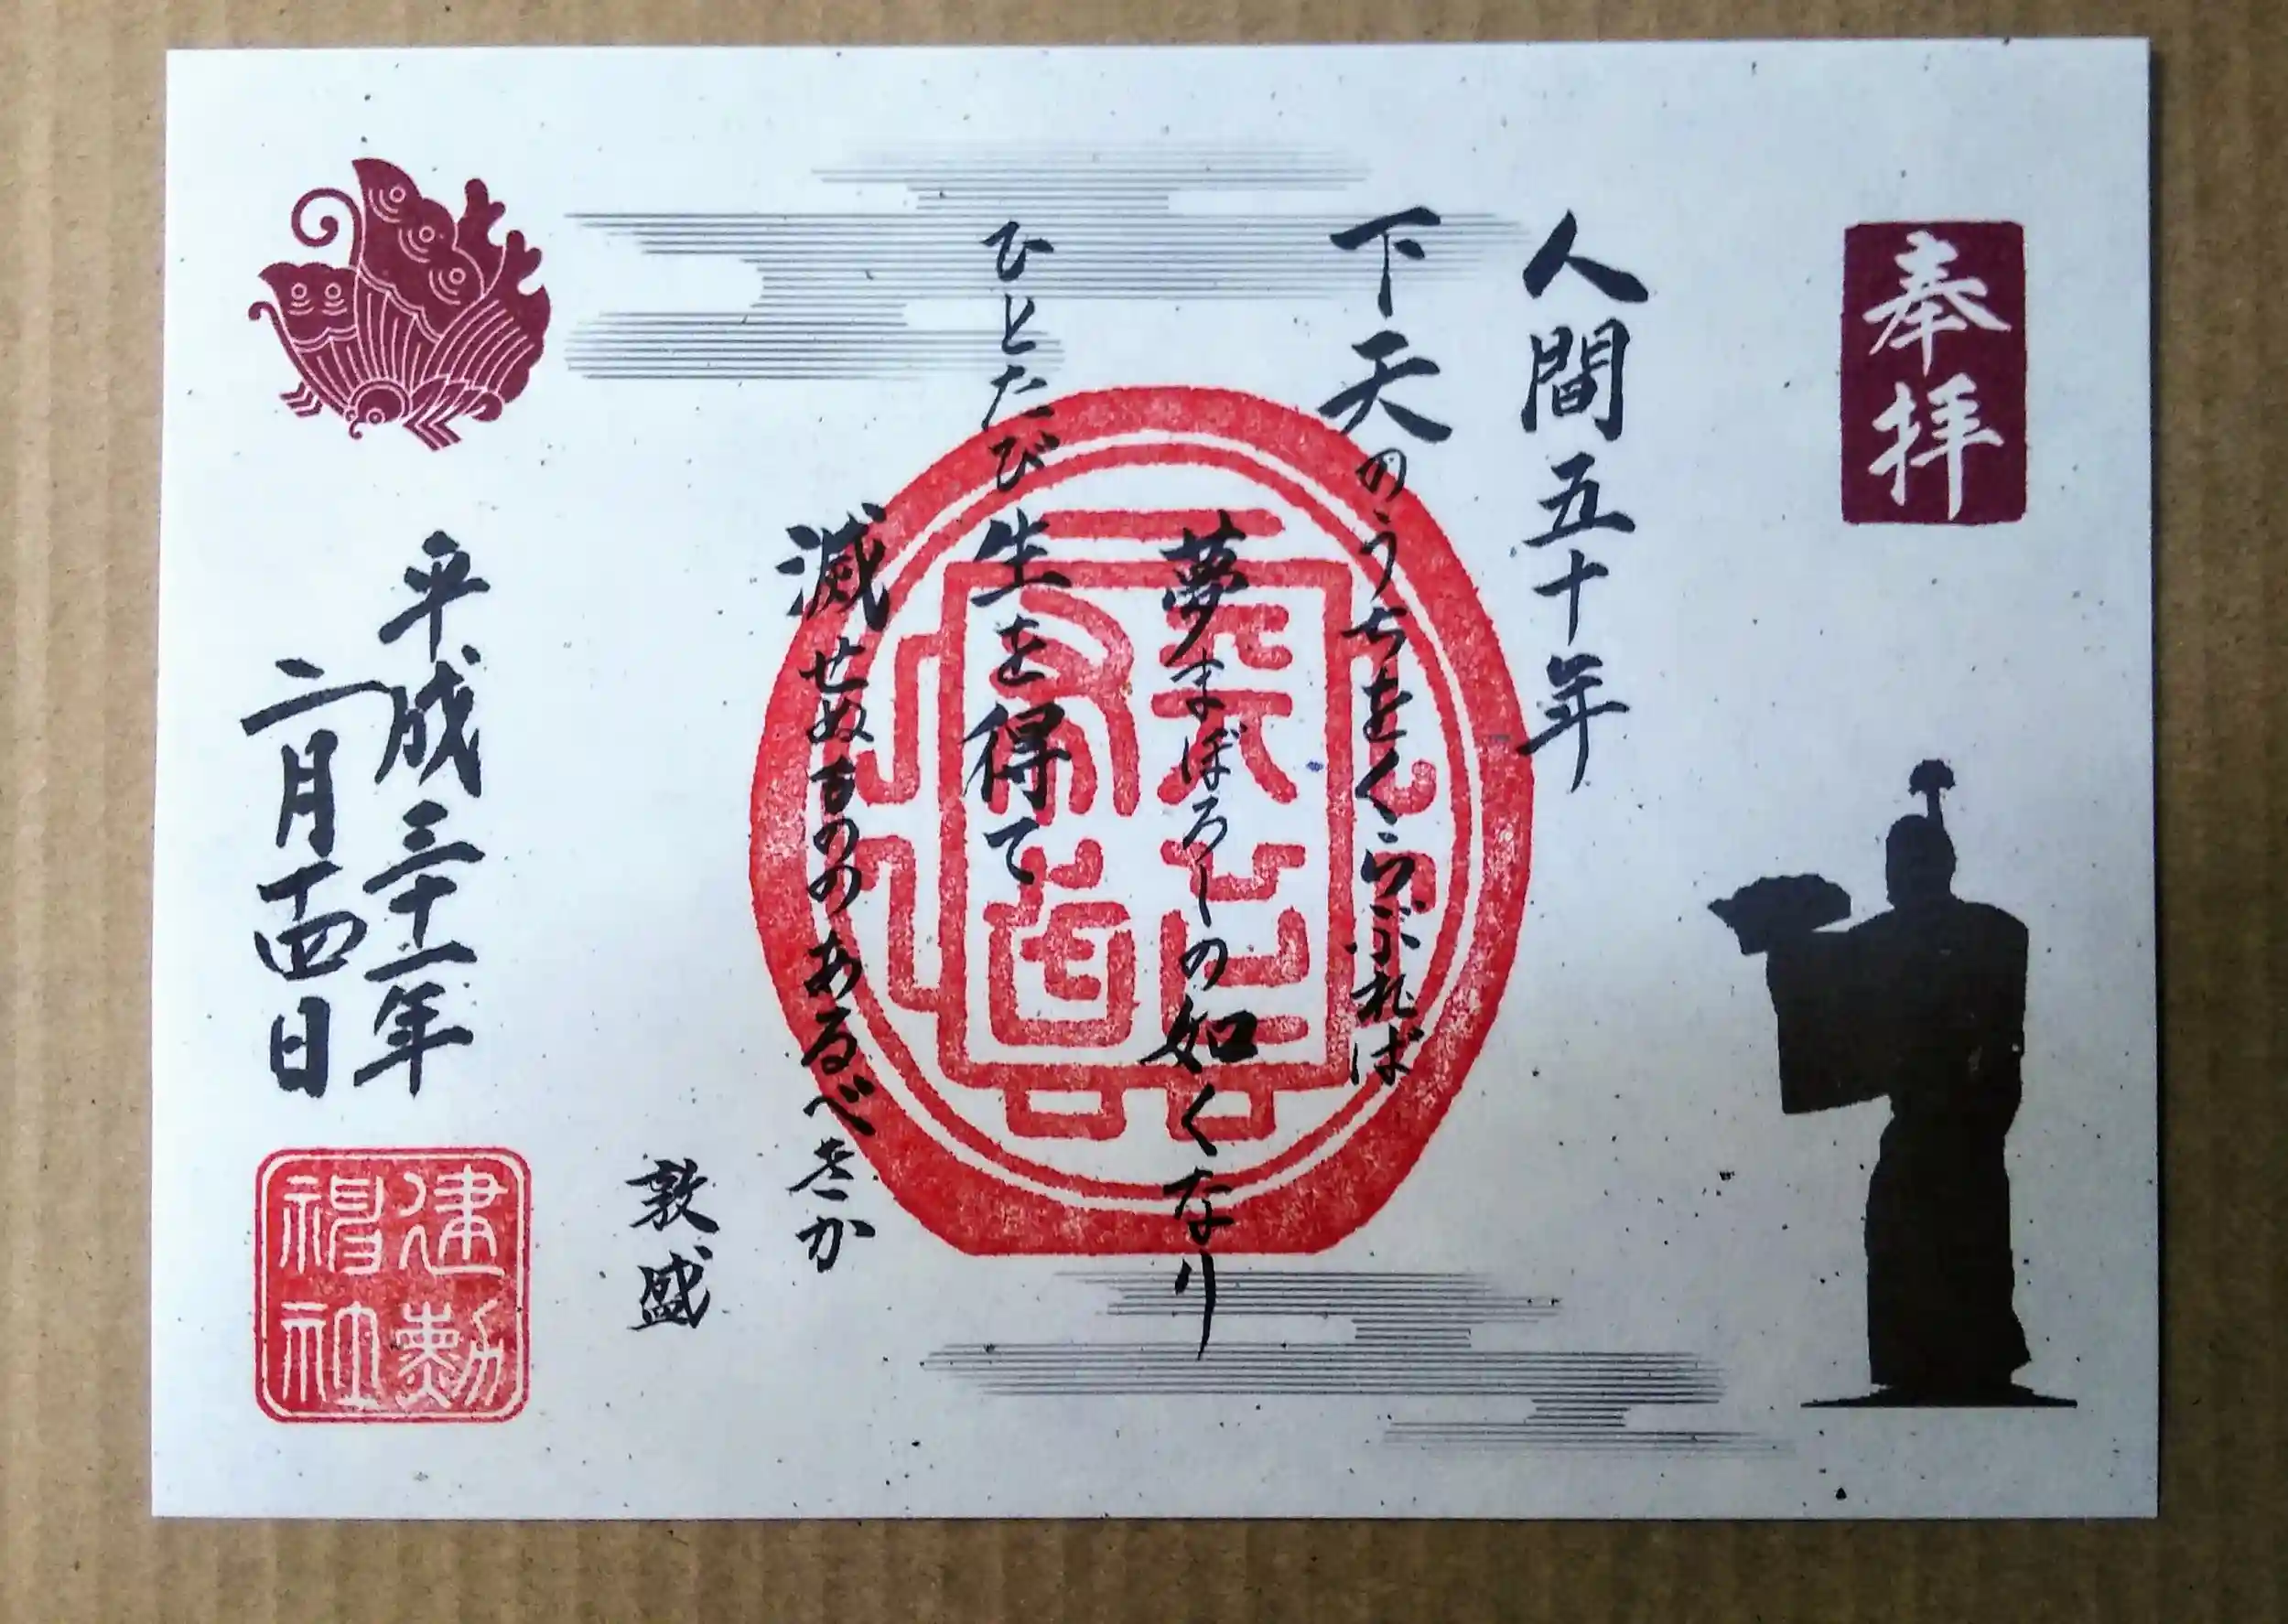 奉拝
人間五十年
下天のうちをくらぶれば
夢まぼろしの如くなり
ひとたび生を得て
滅せぬもののあるべきか
敦盛
平成三十一年
二月十四日
建勲
神社
天下布武